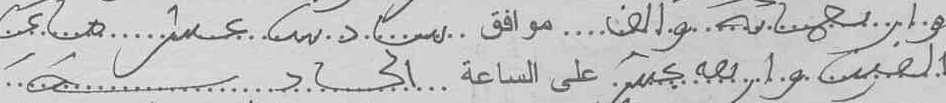 واربعمائة والف.... موافق ..سادس عشر.....
الفين واربعة عشر على الساعة ...الحادية...